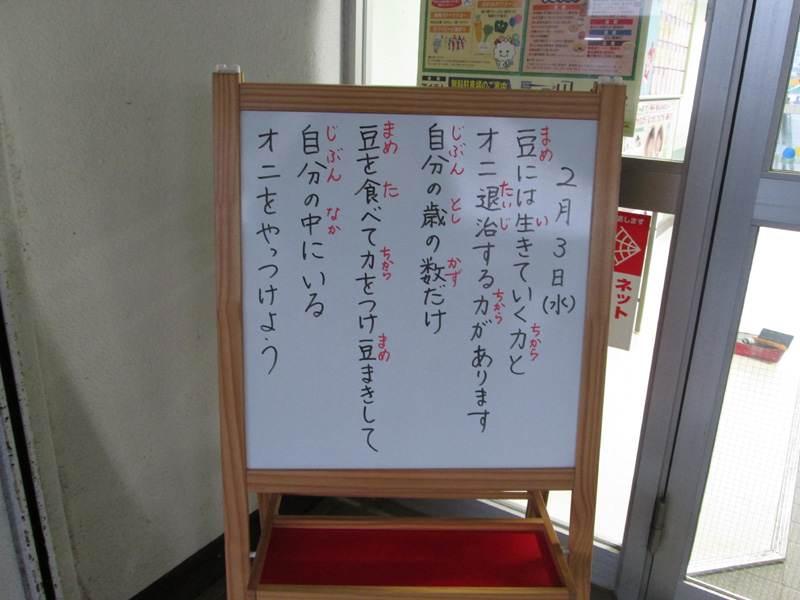 2月3日(水)
豆には生きていく力と
オニ退治する力があります
自分の歳の数だけ
豆を食べて力をつけ豆まきして
自分の中にいる
オニをやっつけよう
まめ
い
ちから
たいじ
ちから
じぶん
とし
かず
まめ
た
ちから
まめ
じぶん
なか
ネット